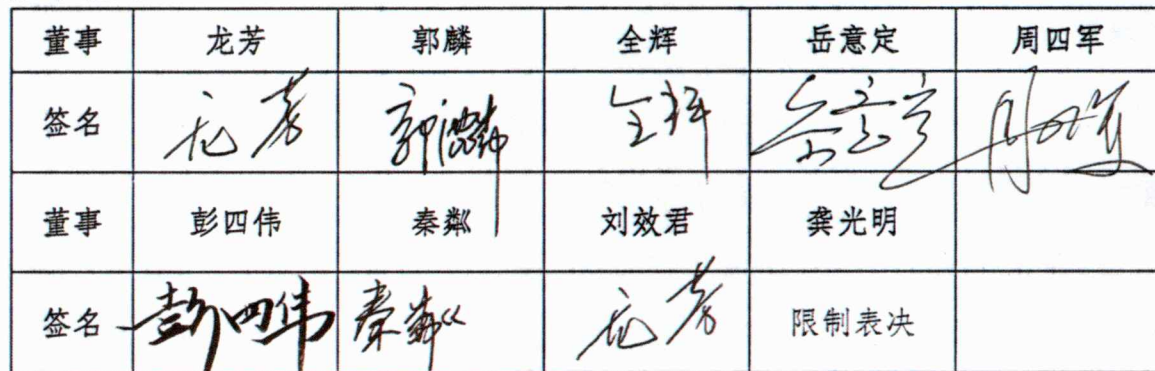 董事 龙芳 郭麟 全辉 岳意定 周四军
签名 龙芳 郭麟 全辉 岳意定 周四军
董事 彭四伟 秦粼 刘效君 龚光明
签名 彭四伟 秦粼 龙芳 限制表决